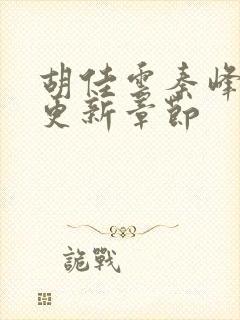 胡佳雲秦峰
更新章節
詭戰